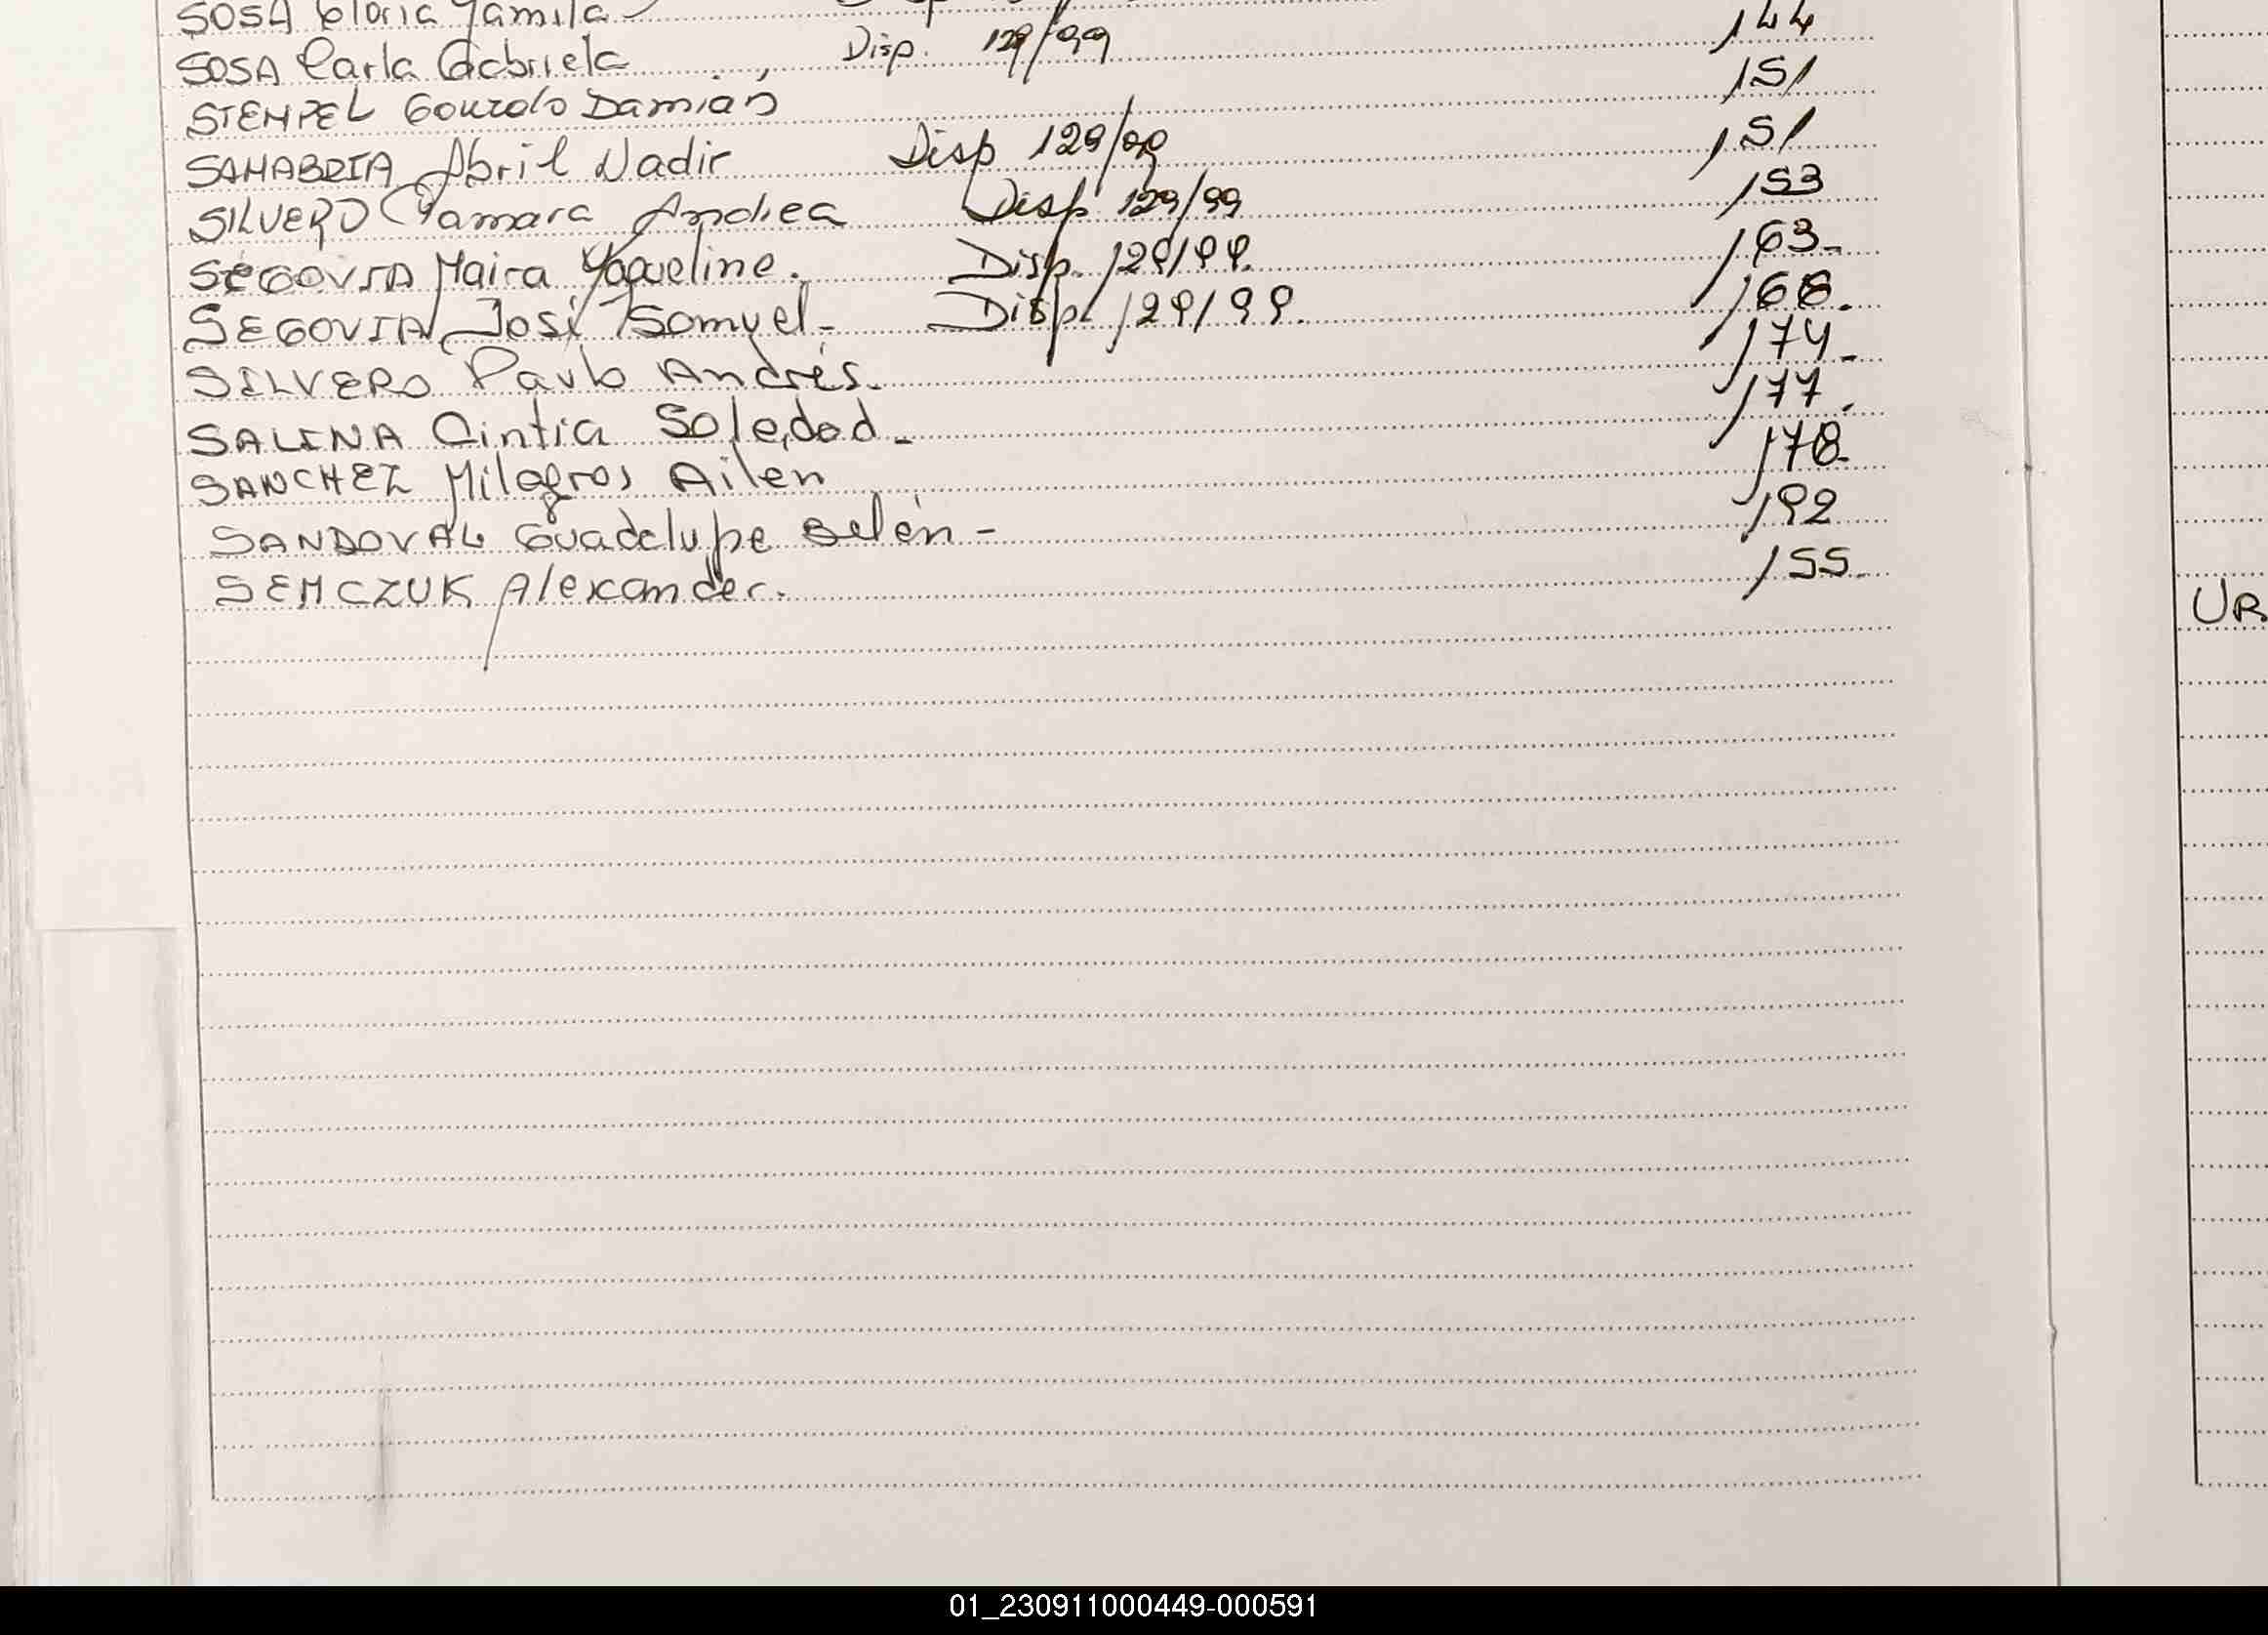 SOSA Gloria Yamila
SOSA Carla Gabriela Disp. 129/99 144
STEMPEL Gonzalo Damián 151
SANABRIA Abril Nadir Disp 129/99 151
SILVERO Tamara Andrea Disp 129/99 153
SEGOVIA Maira Yaqueline. Disp. 129/99. 163-
SEGOVIA José Samuel- Disp. 129/99. 168.
SILVERO Paulo Andrés. 174-
SALINA Cintia Soledad- 177.
SANCHEZ Milagros Ailen 178-
SANDOVAL Guadelupe Belén- 192
SEMCZUK Alexander. 155-
UR
01_230911000449-000591